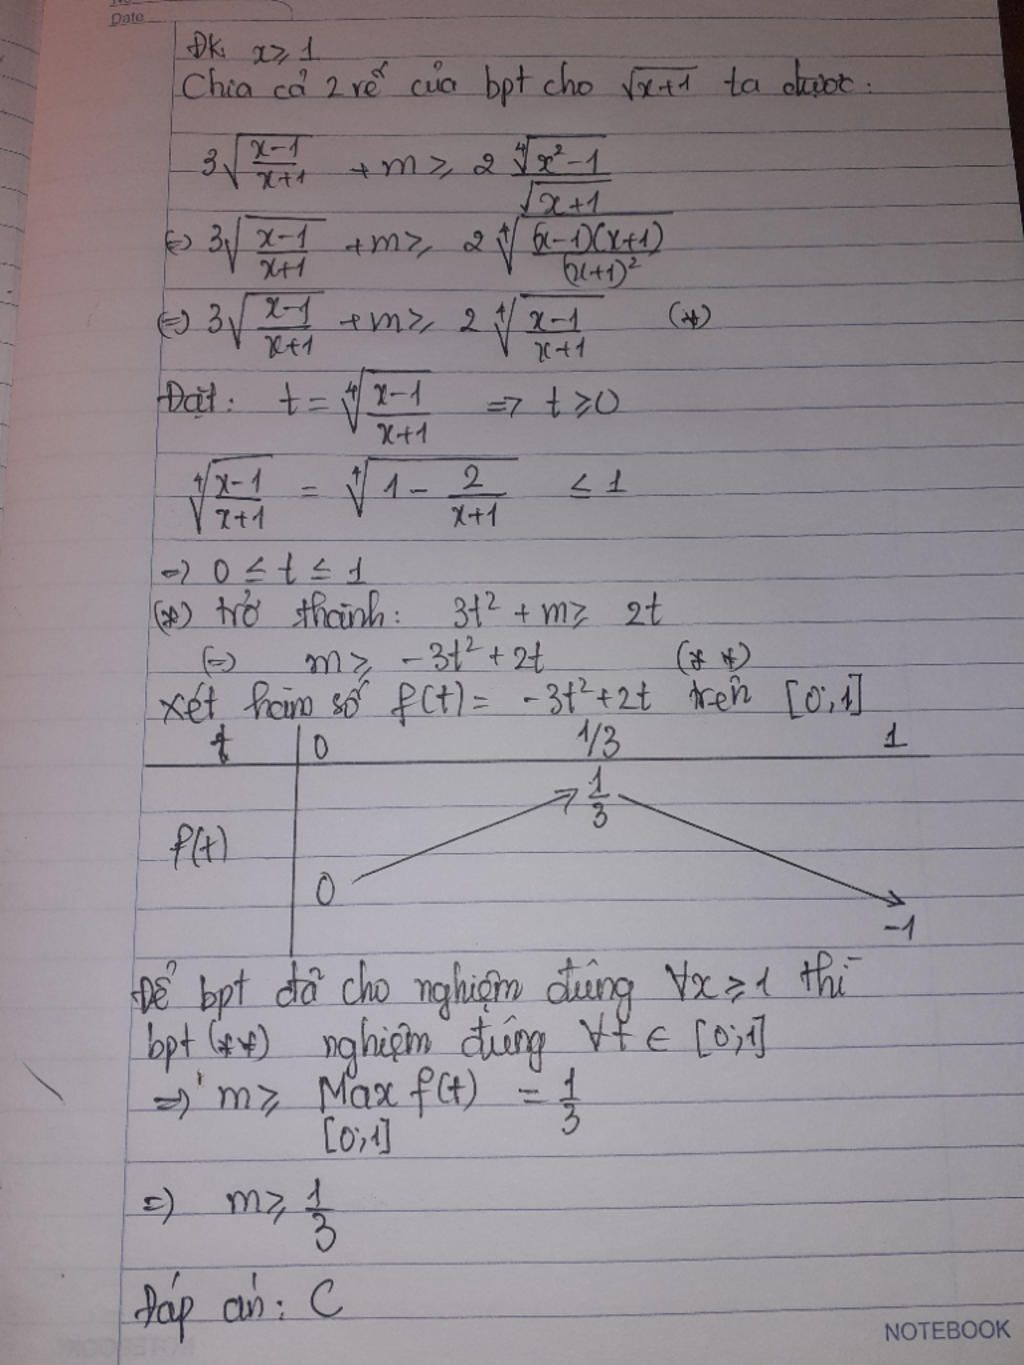 Date
ĐK x ≥ 1
Chia cả 2 vế của bpt cho √x+1 ta được:
3√(x-1)/(x+1) + m ≥ 2 ⁴√(x²-1)/√(x+1)
⇔ 3√(x-1)/(x+1) + m ≥ 2 ⁴√((x-1)(x+1))/((x+1)²)
⇔ 3√(x-1)/(x+1) + m ≥ 2 ⁴√(x-1)/(x+1) (*)
Đặt: t = ⁴√(x-1)/(x+1) => t ≥ 0
⁴√(x-1)/(x+1) = ⁴√(1 - 2/(x+1)) ≤ 1
=> 0 ≤ t ≤ 1
(*) trở thành: 3t² + m ≥ 2t
⇔ m ≥ -3t² + 2t (**)
xét hàm số f(t) = -3t²+2t trên [0;1]
t 0 1/3 1
f(t) 0 1/3 -1
Để bpt đã cho nghiệm đúng ∀x ≥ 1 thì
bpt (**) nghiệm đúng ∀t ∈ [0;1]
=> m ≥ Max f(t) = 1/3
[0;1]
=> m ≥ 1/3
Đáp án: C
NOTEBOOK